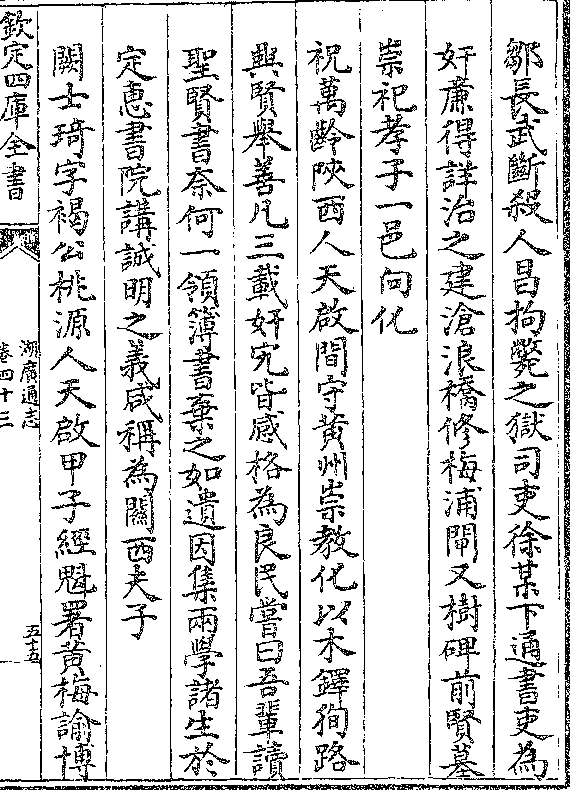 鄒長武斷殺人昌拘斃之獄司吏徐某下通書吏為
奸廉得詳治之建滄浪橋修梅浦閘又樹碑前賢墓
崇祀孝子一邑向化
祝萬齡陜西人天啟間守黃州崇教化以木鐸徇路
興賢舉善凡三載奸宄皆感格為良民嘗曰吾輩讀
聖賢書奈何一領簿書棄之如遺因集兩學諸生於
定惠書院講誠明之義咸稱為關西夫子
闕士琦字褐公桃源人天啟甲子經魁署黃梅諭博
欽定四庫全書
湖廣通志
卷四十三
五十五